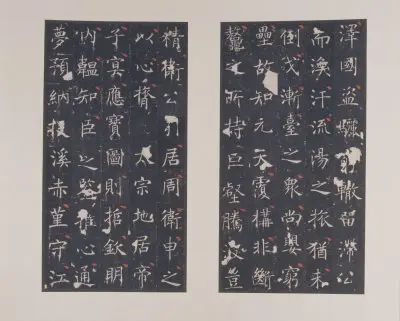 澤國盜轍留滯公
而渙汗流湯之旅猶未
倒戈漸臺之衆尚嬰窮
壘故知元天覆構非斷
鼇之所持巨壑騰波豈
精衛公引居周衛申之
以心膂太宗地居帝
子冥應寶圖則哲欽明
內韞知臣之鑒推心通
夢預納投溪赤堇守江